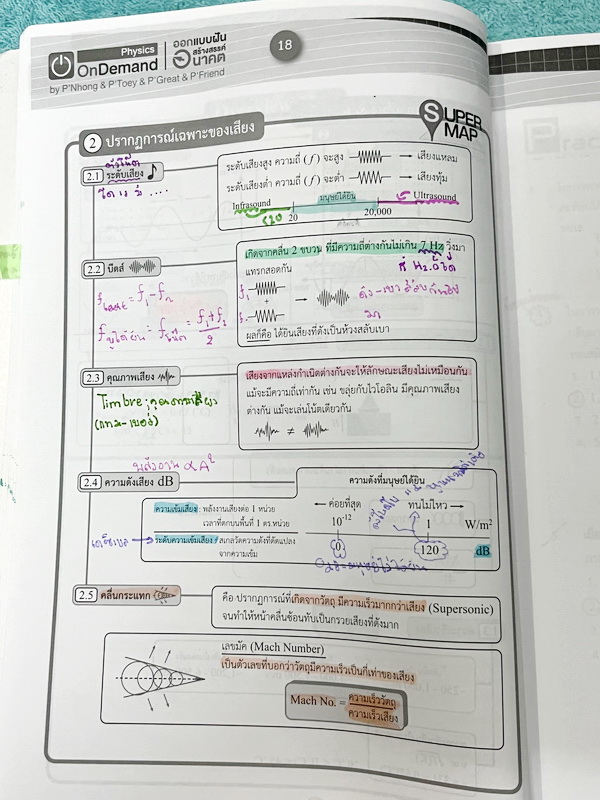 Physics
OnDemand
ออกแบบฝัน
สร้างสรรค์
อนาคต
by P'Nhong & P'Toey & P'Great & P'Friend
18
SUPER
MAP
2 ปรากฏการณ์เฉพาะของเสียง
2.1 ระดับเสียง
ระดับเสียงสูง ความถี่ (f) จะสูง → เสียงแหลม
ระดับเสียงต่ำ ความถี่ (f) จะต่ำ → เสียงทุ้ม
Infrasound มนุษย์ได้ยิน Ultrasound
20 20,000
2.2 บีตส์
เกิดจากคลื่น 2 ขบวน ที่มีความถี่ต่างกันไม่เกิน 7 Hz วิ่งมา
แทรกสอดกัน
f beat = f₁-f₂
+ →
= f₁+f₂
2
ผลก็คือ ได้ยินเสียงที่ดังเป็นห้วงสลับเบา
2.3 คุณภาพเสียง
เสียงจากแหล่งกำเนิดต่างกันจะให้ลักษณะเสียงไม่เหมือนกัน
แม้จะมีความถี่เท่ากัน เช่น ขลุ่ยกับไวโอลิน มีคุณภาพเสียง
ต่างกัน แม้จะเล่นโน้ตเดียวกัน
≠
Timbre : คุณภาพเสียง
พลังงาน ∝ A²
2.4 ความดังเสียง dB
ความดังที่มนุษย์ได้ยิน
← ค่อยที่สุด ทนไม่ไหว →
10⁻¹² 1 W/m²
0 120 dB
ความเข้มเสียง : พลังงานเสียงต่อ 1 หน่วย
เวลาที่ตกบนพื้นที่ 1 ตร.หน่วย
เดซิเบล
ระดับความเข้มเสียง : สเกลวัดความดังที่ดัดแปลง
จากความเข้ม
2.5 คลื่นกระแทก
คือ ปรากฏการณ์ที่เกิดจากวัตถุ มีความเร็วมากกว่าเสียง (Supersonic)
จนทำให้หน้าคลื่นซ้อนทับเป็นกรวยเสียงที่ดังมาก
เลขมัค (Mach Number)
เป็นตัวเลขที่บอกว่าวัตถุมีความเร็วเป็นกี่เท่าของเสียง
Mach No. = ความเร็ววัตถุ
ความเร็วเสียง